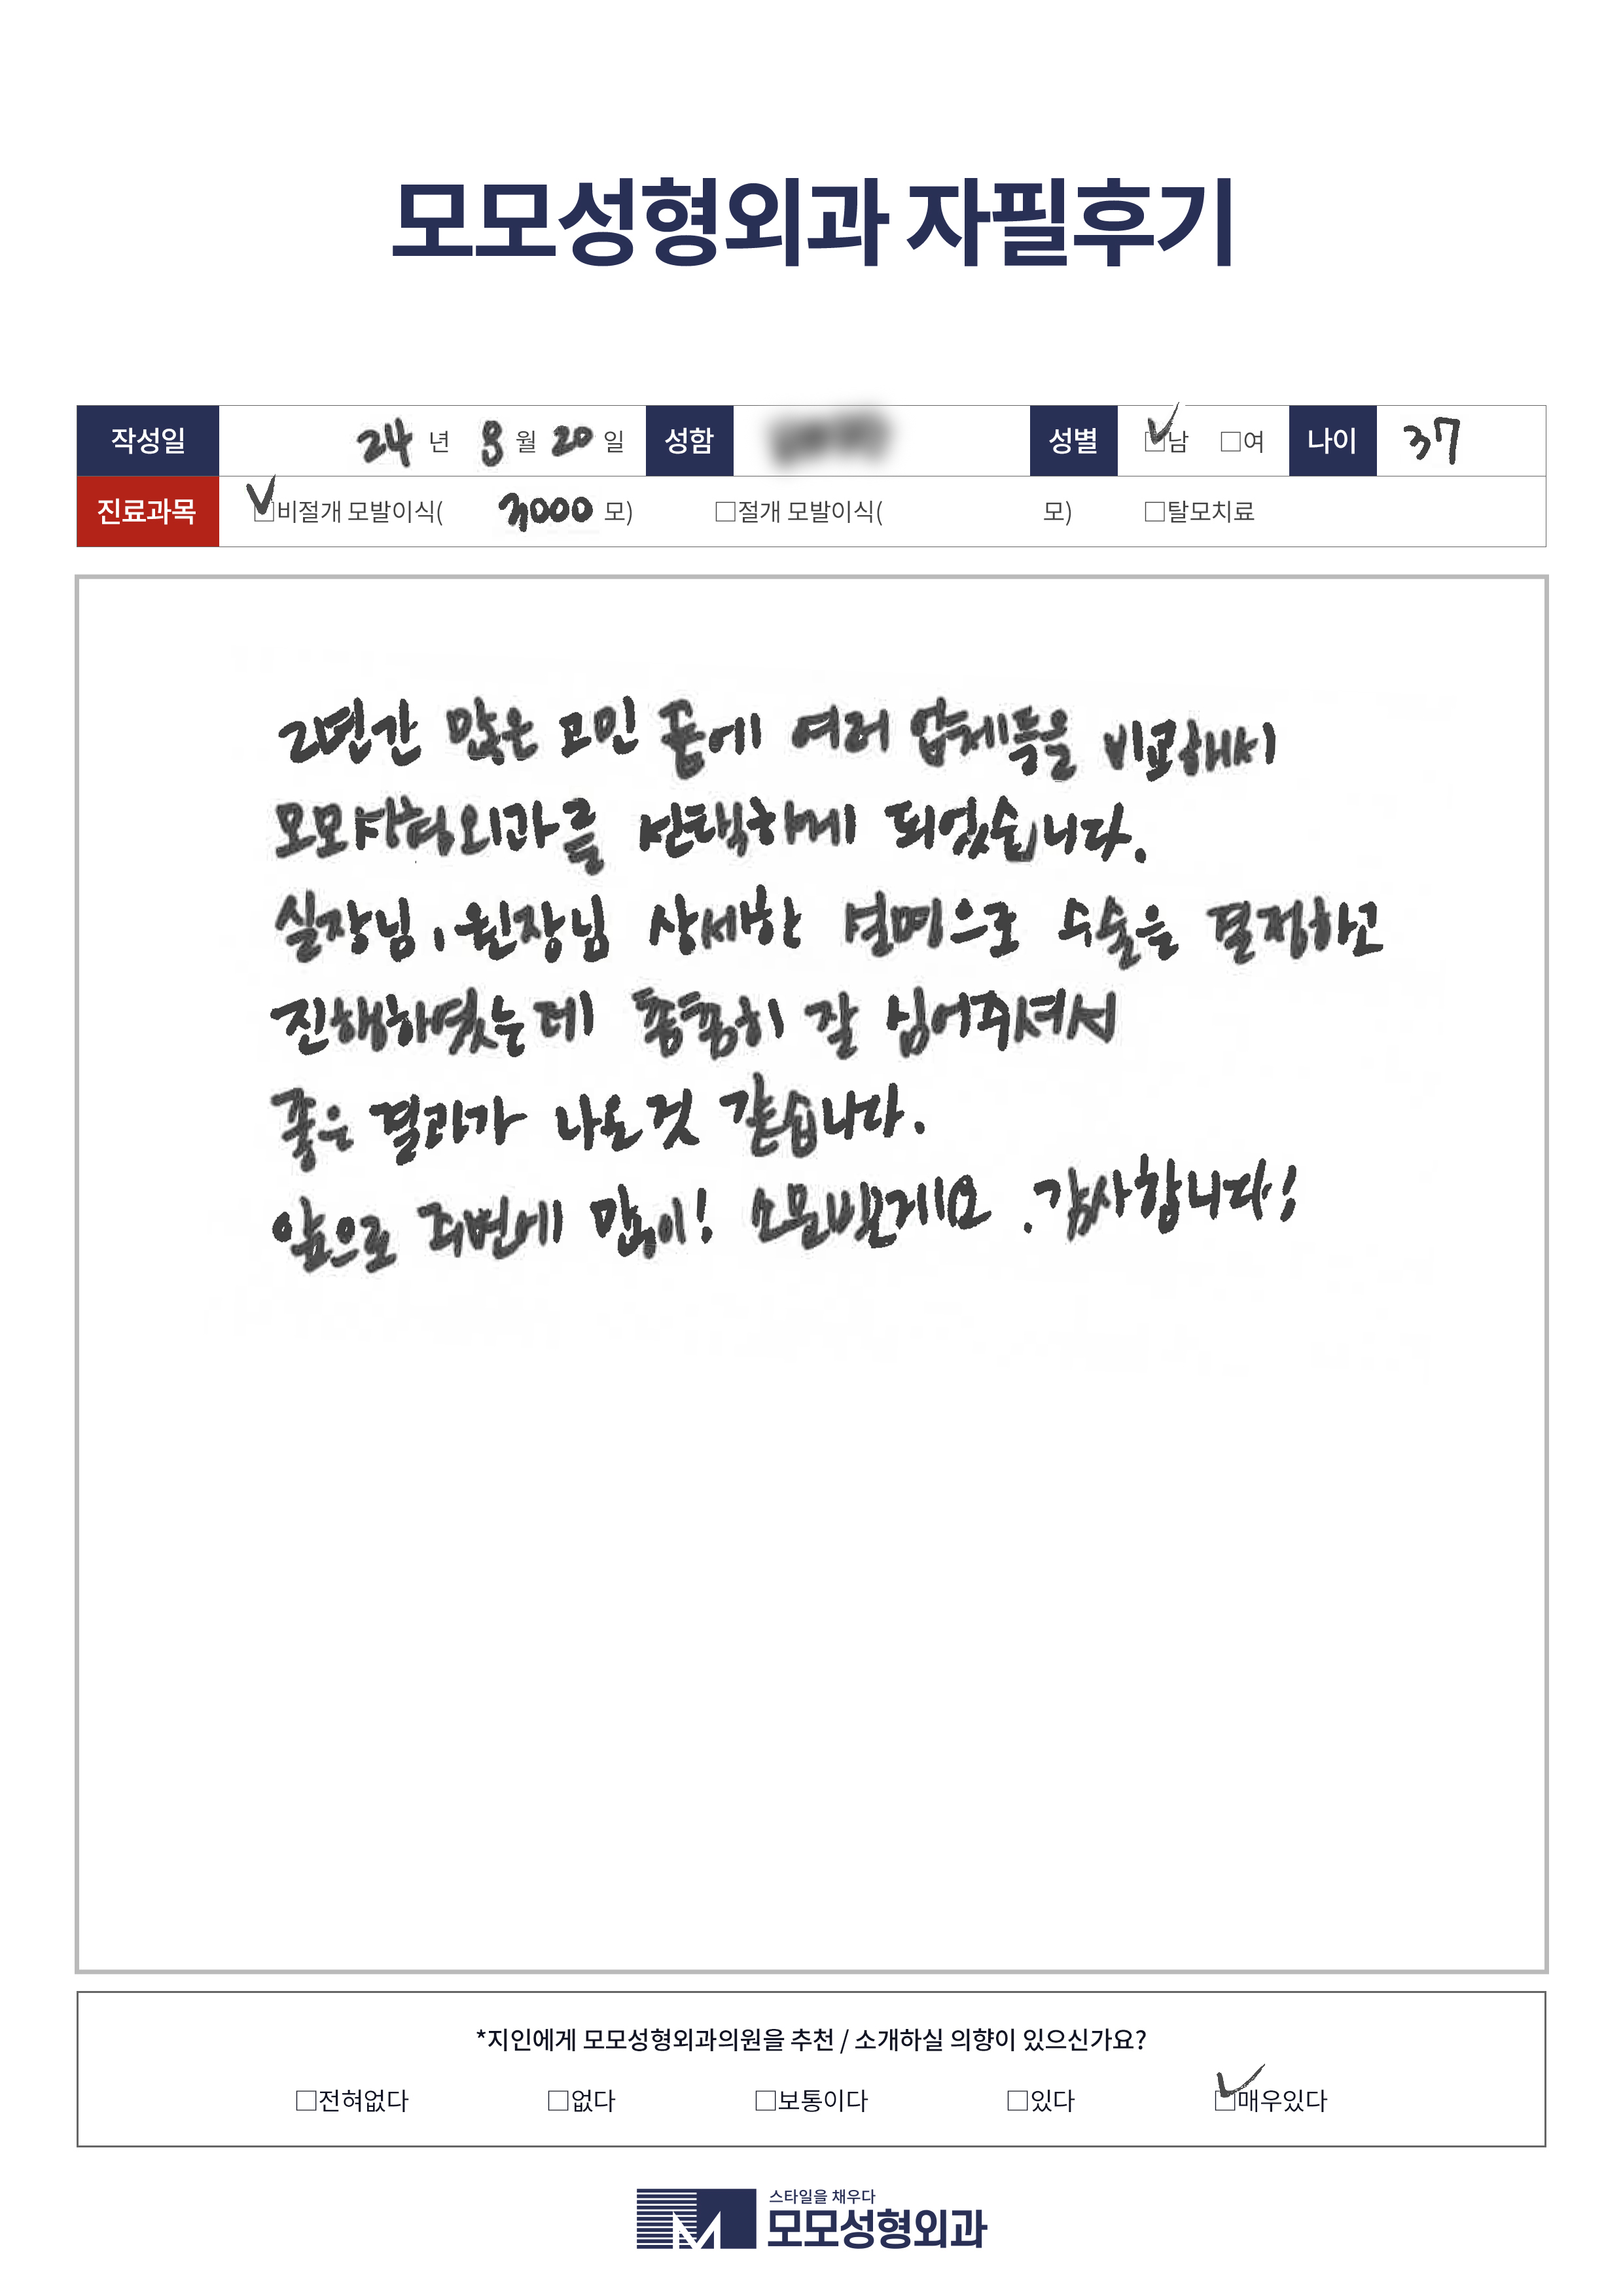 모모성형외과 자필후기
작성일 24 년 8 월 20 일 성함 성별 ☑남 □여 나이 37
진료과목 ☑비절개 모발이식( 3000 모) □절개 모발이식( 모) □탈모치료
2년간 많은 고민 끝에 여러 업체들을 비교해서
모모성형외과를 선택하게 되었습니다.
실장님, 원장님 상세한 설명으로 수술을 결정하고
진행하였는데 촘촘히 잘 심어주셔서
좋은 결과가 나온것 같습니다.
앞으로 주변에 많이! 소문낼게요. 감사합니다!
*지인에게 모모성형외과의원을 추천 / 소개하실 의향이 있으신가요?
□전혀없다 □없다 □보통이다 □있다 ☑매우있다
스타일을 채우다
모모성형외과